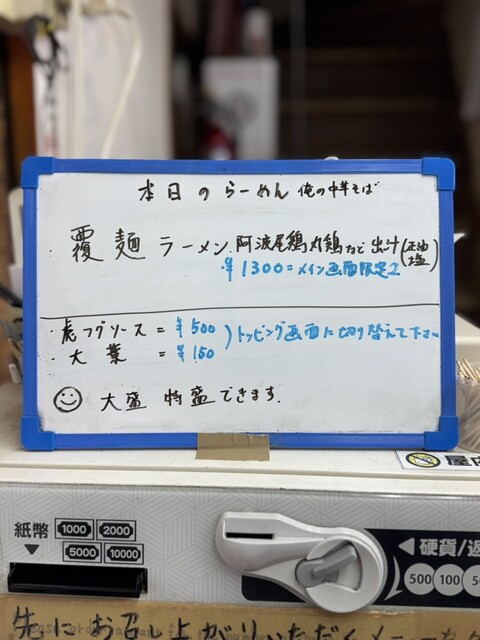 本日のらーめん 俺の中華そば
覆麺 ラーメン 阿波尾鶏丸鶏など出汁(正油 塩)
¥1300= メイン画面限定2
・虎フグソース = ¥500
・大葉 = ¥150
)トッピング画面に切り替えて下さい
大盛 特盛できます.
紙幣 1000 2000
5000 10000
硬貨/返
500 100 50
先にお召し上がりいただく